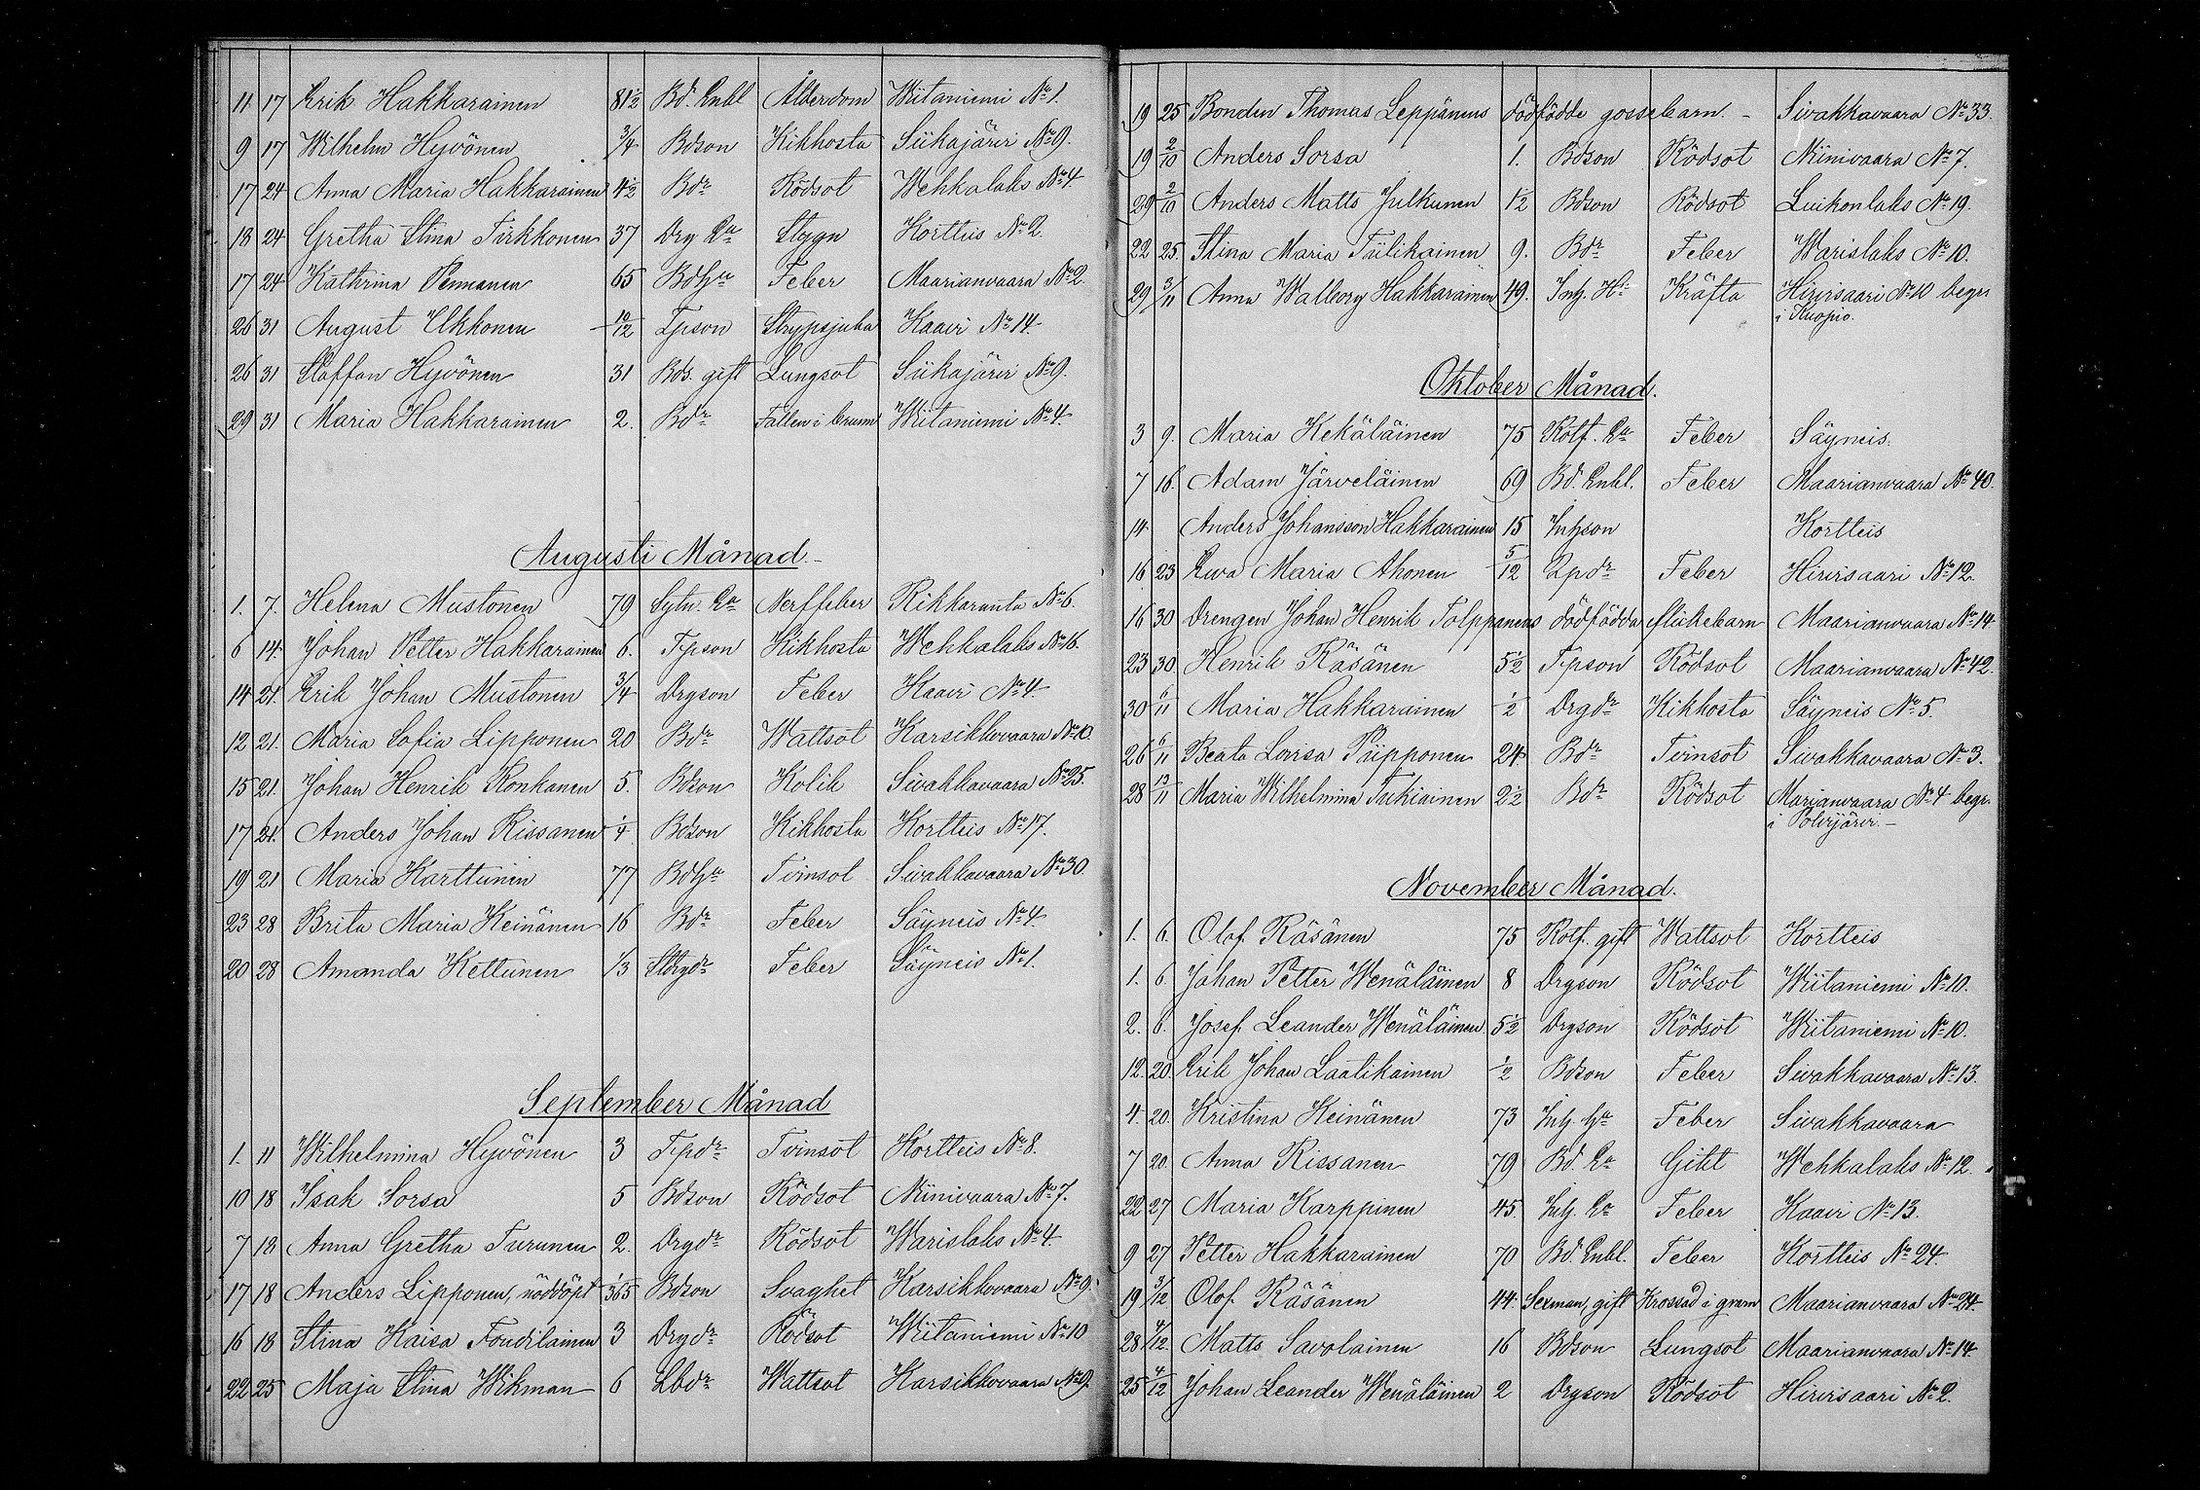 11 17 Erik Hakkarainen 81½ Bd. Enkl Ålderdom Wiitaniemi No 1.
9 17 Wilhelm Hyvönen ¾ Bdson Kikhosta Siikajärvi No 9.
17 24 Anna Maria Hakkarainen 4½ Bdr Rödsot Wehkalaks No 4
18 24 Gretha Stina Tirkkonen 37 Drg Ea Stygn Kortteis No 2.
17 24 Kathrina Pennanen 65 Bdhu Feber Maarianvaara No 2
26 31 August Ukkonen 10/12 Tpson Strypsjuka Kaavi No 14.
26 31 Staffan Hyvönen 31 Bds. gift Lungsot Siikajärvi No 9.
29 31 Maria Hakkarainen 2. Bdr Fallen i brunn Wiitaniemi No 4.
Augusti Månad.
1. 7. Helena Mustonen 79 Sytn. Ea Nerffeber Rikkaranta No 6.
6 14. Johan Petter Hakkarainen 6. Tpson Kikhosta Wehkalaks No 16.
14 21. Erik Johan Mustonen ¾ Drgson Feber Kaavi No 4.
12 21. Maria Sofia Lipponen 20 Bdr Wattsot Karsikkovaara No 10.
15 21. Johan Henrik Konkanen 5. Bdson Kolik Sivakkavaara No 25.
17 21. Anders Johan Rissanen ¼ Bdson Kikhosta Kortteis No 17.
19 21 Maria Karttunen 77 Bdhu Tvinsot Sivakkavaara No 30.
23 28 Brita Maria Keinänen 16 Bdr Feber Säyneis No 4.
20 28 Amanda Kettunen ⅓ Feber Säyneis No 1.
September Månad
1. 11 Wilhelmina Hyvönen 3 Tpdr Tvinsot Kortteis No 8.
10 18 Isak Sorsa 5 Bdson Rödsot Niinivaara No 7.
7 18 Anna Gretha Turunen 2. Drgdr Rödsot Warislaks No 4.
17 18 Anders Lipponen, nöddöpt 1/365 Bdson Svaghet Karsikkovaara No 9.
16 18 Stina Kaisa Toudilainen 3 Drgdr Rödsot Wiitaniemi No 10
22 25 Maja Stina Wikman 6 Lbdr Wattsot Karsikkovaara No 9.
19 25 Bonden Thomas Leppänens dödfödde gossebarn. - Sivakkavaara No 33.
19 2/10 Anders Sorsa 1. Bdson Rödsot Niinivaara No 7.
29 2/10 Anders Matts Julkunen 1½ Bdson Rödsot Luikonlaks No 19.
22 25. Stina Maria Tiilikainen 9. Bdr Feber Warislaks No 10.
29 3/11 Anna Walborg Hakkarainen 49. Inh. Hu Kräfta Hirvisaari No 10 begr.
i Kuopio.
Oktober Månad.
3 9. Maria Kekäläinen 75 Rotf. Ea Feber Säyneis.
7 16. Adam Järveläinen 69 Bd. Enkl. Feber Maarianvaara No 40.
14 Anders Johansson Hakkarainen 15 Inhson Kortteis
16 23 Ewa Maria Ahonen 5/12 Feber Hirvisaari No 12.
16 30 Drengen Johan Henrik Tolppanens dödfödda flickebarn Maarianvaara No 14
23 30. Henrik Räsänen 5½ Tpson Rödsot Maarianvaara No 42.
30 6/11 Maria Hakkarainen ½ Drgdr Kikhosta Säyneis No 5.
26 6/11 Beata Lovisa Piipponen 24 Bdr Tvinsot Sivakkavaara No 3.
28 13/11 Maria Wilhelmina Tukiainen 2½ Bdr Rödsot Marianvaara No 4 begr.
i Polvijärvi. -
November Månad.
1. 6. Olof Räsänen 75 Rotf. gift Wattsot Kortteis
1. 6. Johan Petter Wenäläinen 8 Drgson Rödsot Wiitaniemi No 10.
2. 6. Josef Leander Wenäläinen 5½ Drgson Rödsot Wiitaniemi No 10.
12. 20. Erik Johan Laatikainen ½ Bdson Feber Sivakkavaara No 13.
4. 20. Kristina Keinänen 73 Inh. Hu Feber Sivakkavaara
7 20. Anna Rissanen 79 Bd. Ea Gikt Wehkalaks No 12.
22 27 Maria Karppinen 45 Inh. Ea Feber Kaavi No 13.
9 27 Petter Hakkarainen 70 Bd. Enkl. Feber Kortteis No 24.
19 3/12 Olof Räsänen 44. Sexman, gift Krossad i qvarn Maarianvaara No 24.
28 4/12. Matts Savolainen 16 Bdson Lungsot Maarianvaara No 14.
25 4/12 Johan Leander Wenäläinen 2 Drgson Rödsot Hirvisaari No 2.